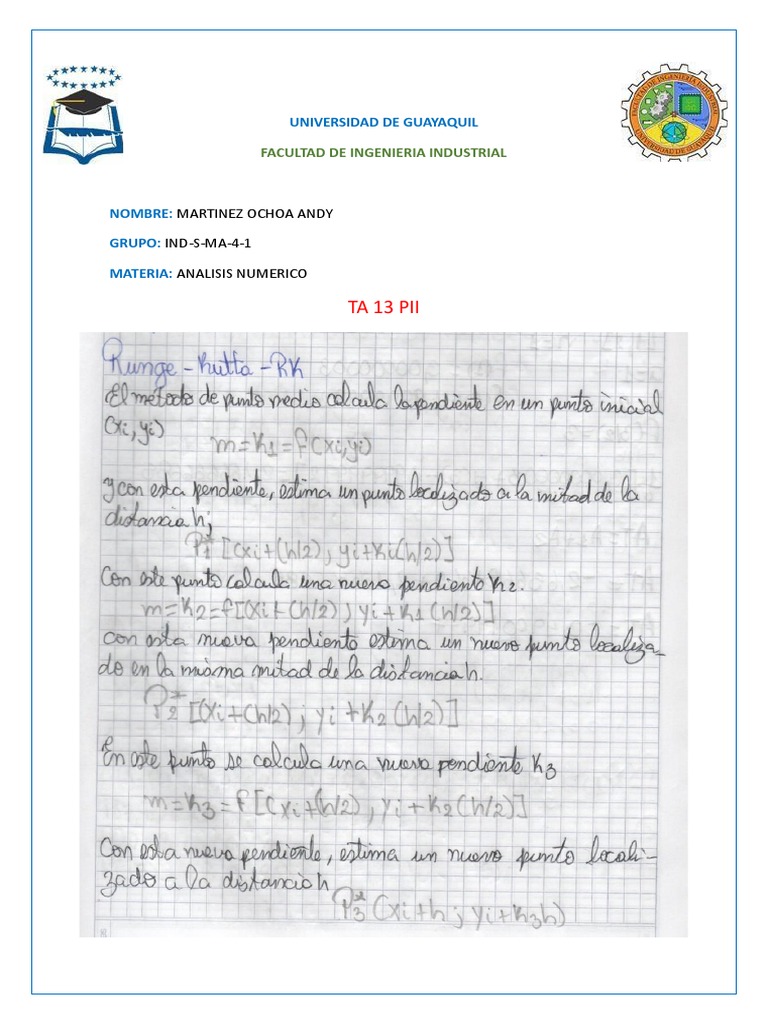 UNIVERSIDAD DE GUAYAQUIL
FACULTAD DE INGENIERIA INDUSTRIAL
FACULTAD DE INGENIERÍA INDUSTRIAL
UNIVERSIDAD DE GUAYAQUIL
NOMBRE: MARTINEZ OCHOA ANDY
GRUPO: IND-S-MA-4-1
MATERIA: ANALISIS NUMERICO
TA 13 PII
Runge-Kutta-RK
El método de punto medio calcula la pendiente en un punto inicial
(xi, yi)
m=K1=f(xi,yi)
y con esta pendiente, estima un punto localizado a la mitad de la
distancia h;
P1* [(xi+(h/2); yi+Ki(h/2)]
Con este punto calcula una nueva pendiento K2.
m=K2=f[(xi+(h/2), yi+K1(h/2)]
con esta nueva pendiento estima un nuevo punto localiza-
do en la misma mitad de la distancia h.
P2* [(xi+(h/2); yi+K2(h/2)]
En este punto se calcula una nueva pendiente K3
m=K3=f[(xi+(h/2), yi+K2(h/2)]
Con esta nueva pendiente, estima un nuevo punto locali-
zado a la distancia h
P3* (xi+h; yi+K3h)